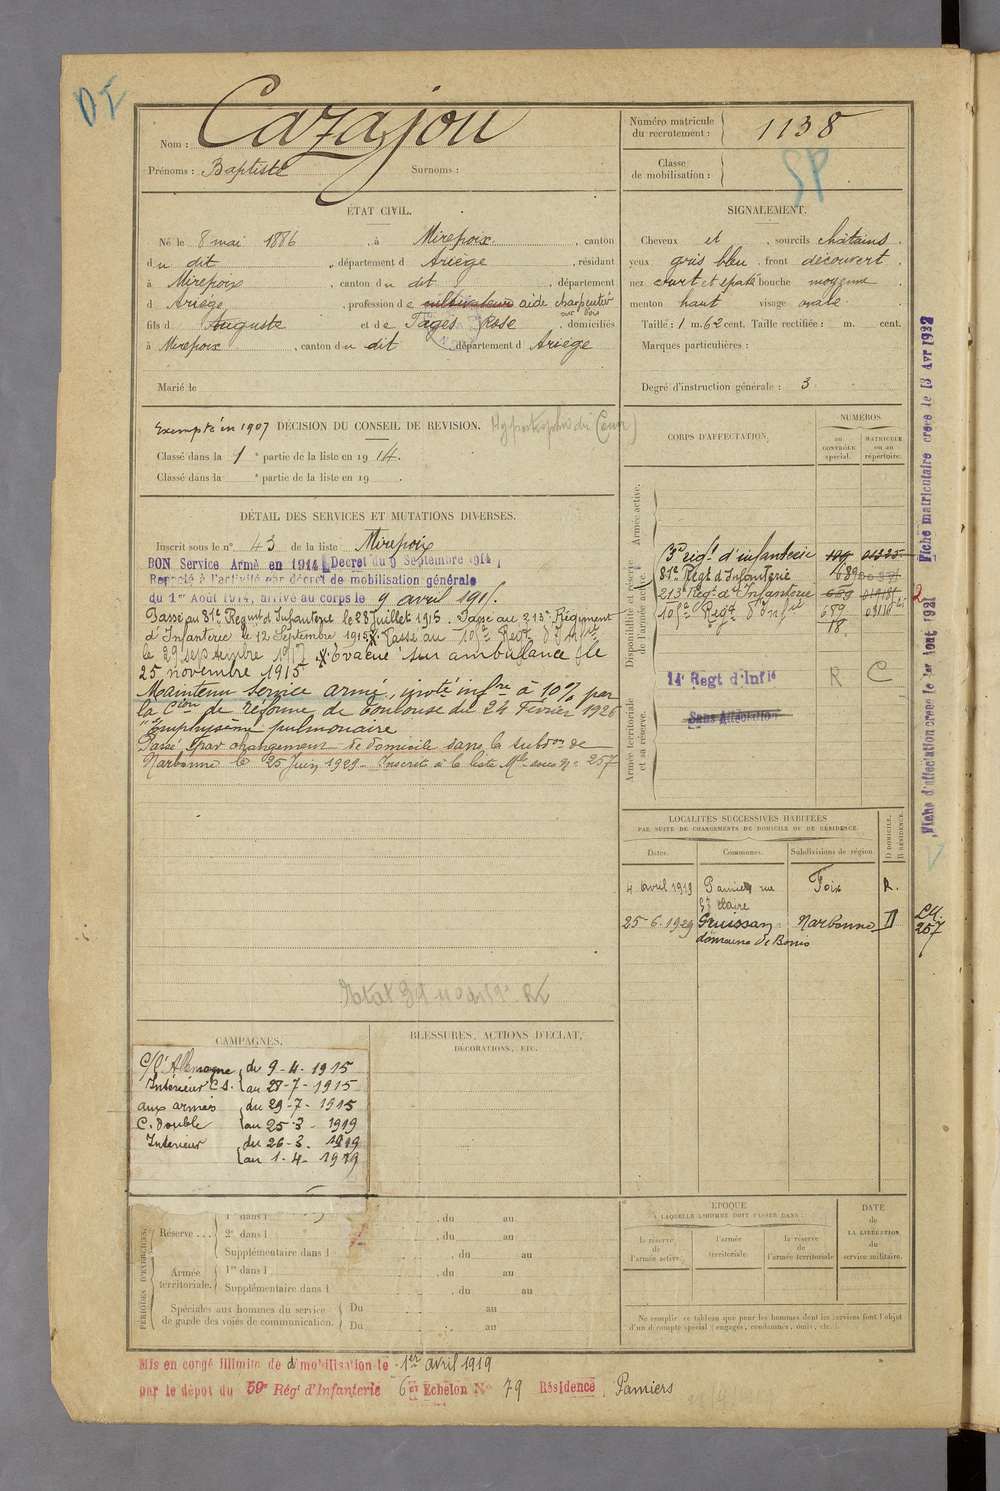 DI
Nom : Cazajou
Prénoms : Baptiste Surnoms :
Numéro matricule du recrutement : 1138
Classe de mobilisation :
SP
ÉTAT CIVIL.
Né le 8 mai 1886, à Mirepoix, canton
du dit, département d Ariège, résidant
à Mirepoix, canton du dit, département
d Ariège, profession de cultivateur aide charpentier
sur bois
fils d Auguste et de Pagés Rose, domiciliés
à Mirepoix, canton du dit, département d Ariège
Marié le
SIGNALEMENT.
Cheveux et, sourcils châtains,
yeux gris bleu, front découvert,
nez court et épaté bouche moyenne
menton haut visage ovale
Taille : 1 m. 62 cent. Taille rectifiée : m. cent.
Marques particulières :
Degré d'instruction générale : 3
Exempté en 1907 DÉCISION DU CONSEIL DE REVISION. Hypertrophie du Cœur)
Classé dans la 1e partie de la liste en 1914.
Classé dans la e partie de la liste en 19 .
DÉTAIL DES SERVICES ET MUTATIONS DIVERSES.
Inscrit sous le n° 43 de la liste Mirepoix
BON Service Armé en 1914 (Decret du 9 Septembre 1914)
Rappelé à l'activité par décret de mobilisation générale
du 1er Août 1914, arrivé au corps le 9 avril 1915.
Passé au 81e Regmt d'Infanterie le 28 Juillet 1915. Passé au 213e Régiment
d'Infanterie le 12 Septembre 1915. X Passé au 105e Regt d'Infie
le 29 septembre 1917 X Évacué sur ambulance le
25 novembre 1915
Maintenu service armé, invté infre à 10% par
la Cion de réforme de Toulouse du 24 Fevrier 1926
"Emphysème pulmonaire
Passé par changement de domicile dans la subdon de
Narbonne le 25 Juin 1929 - Inscrit à la liste Mle sous n° 257
CORPS D'AFFECTATION.
NUMÉROS
au CONTRÔLE spécial.
MATRICULE ou au répertoire.
Armée active.
Disponibilité et réserve de l'armée active.
Armée territoriale et sa réserve.
3e régt d'infanterie 199 01325
81e Régt d'Infanterie 689
213e Regt d'Infanterie 689
105e Regt d'Infie 689
18.
14e Regt d'Infie R C
Sans Affectation
LOCALITÉS SUCCESSIVES HABITÉES
PAR SUITE DE CHANGEMENTS DE DOMICILE OU DE RÉSIDENCE.
Dates. Communes. Subdivisions de région D DOMICILE. R RÉSIDENCE.
4 avril 1919 Pamiers rue Foix R.
Ste Claire
25-6-1929 Gruissan Narbonne D
domaine de Bonis
LM.
257
Fiche matriculaire créée le 13 Avr 1932
Fiche d'affectation créée le 1er Aout 1931
CAMPAGNES.
C/ l'Allemagne du 9-4-1915
Intérieur C.S. au 28-7-1915
aux armées du 29-7-1915
C. double au 25-3-1919
Intérieur du 26-3-1919
au 1-4-1919
BLESSURES, ACTIONS D'ÉCLAT,
DÉCORATIONS, ETC.
PÉRIODES D'EXERCICES.
Réserve ...
1re dans l
2e dans l , du au
Supplémentaire dans l , du au
Armée territoriale.
1re dans l , du au
Supplémentaire dans l , du au
Spéciales aux hommes du service de garde des voies de communication.
Du au
Du au
ÉPOQUE
A LAQUELLE L'HOMME DOIT PASSER DANS :
la réserve de l'armée active.
l'armée territoriale.
la réserve de l'armée territoriale
DATE de LA LIBÉRATION du service militaire.
Ne remplir ce tableau que pour les hommes dont les services font l'objet
d'un décompte spécial (engagés, condamnés, omis, etc.).
Mis en congé illimité de démobilisation le 1er avril 1919
par le dépot du 59e Régt d'Infanterie 6e Echelon N° 79 Résidence Pamiers